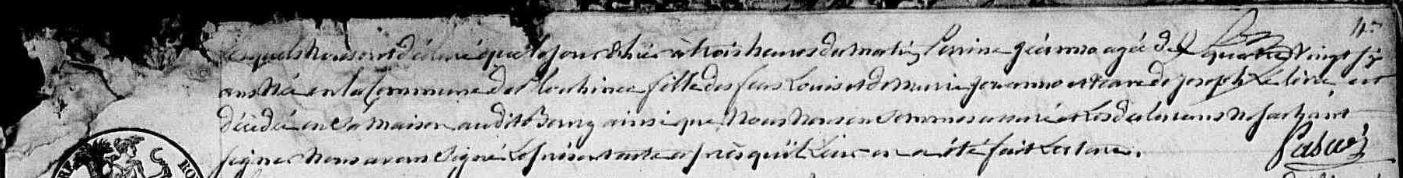 47
lesquels nous ont déclaré que le jour d'hier à trois heures du matin Perrine agée de quatre vingt six
ans née en la Commune de filles des feus Louis et de Marie jouanno et veuve de joseph Le est
décédée en sa maison audit Bourg ainsi que Nous nous en sommes assuré et les déclarans ne sachant
signer Nous avons signé le présent acte après qu'il leur en a été fait lecture.